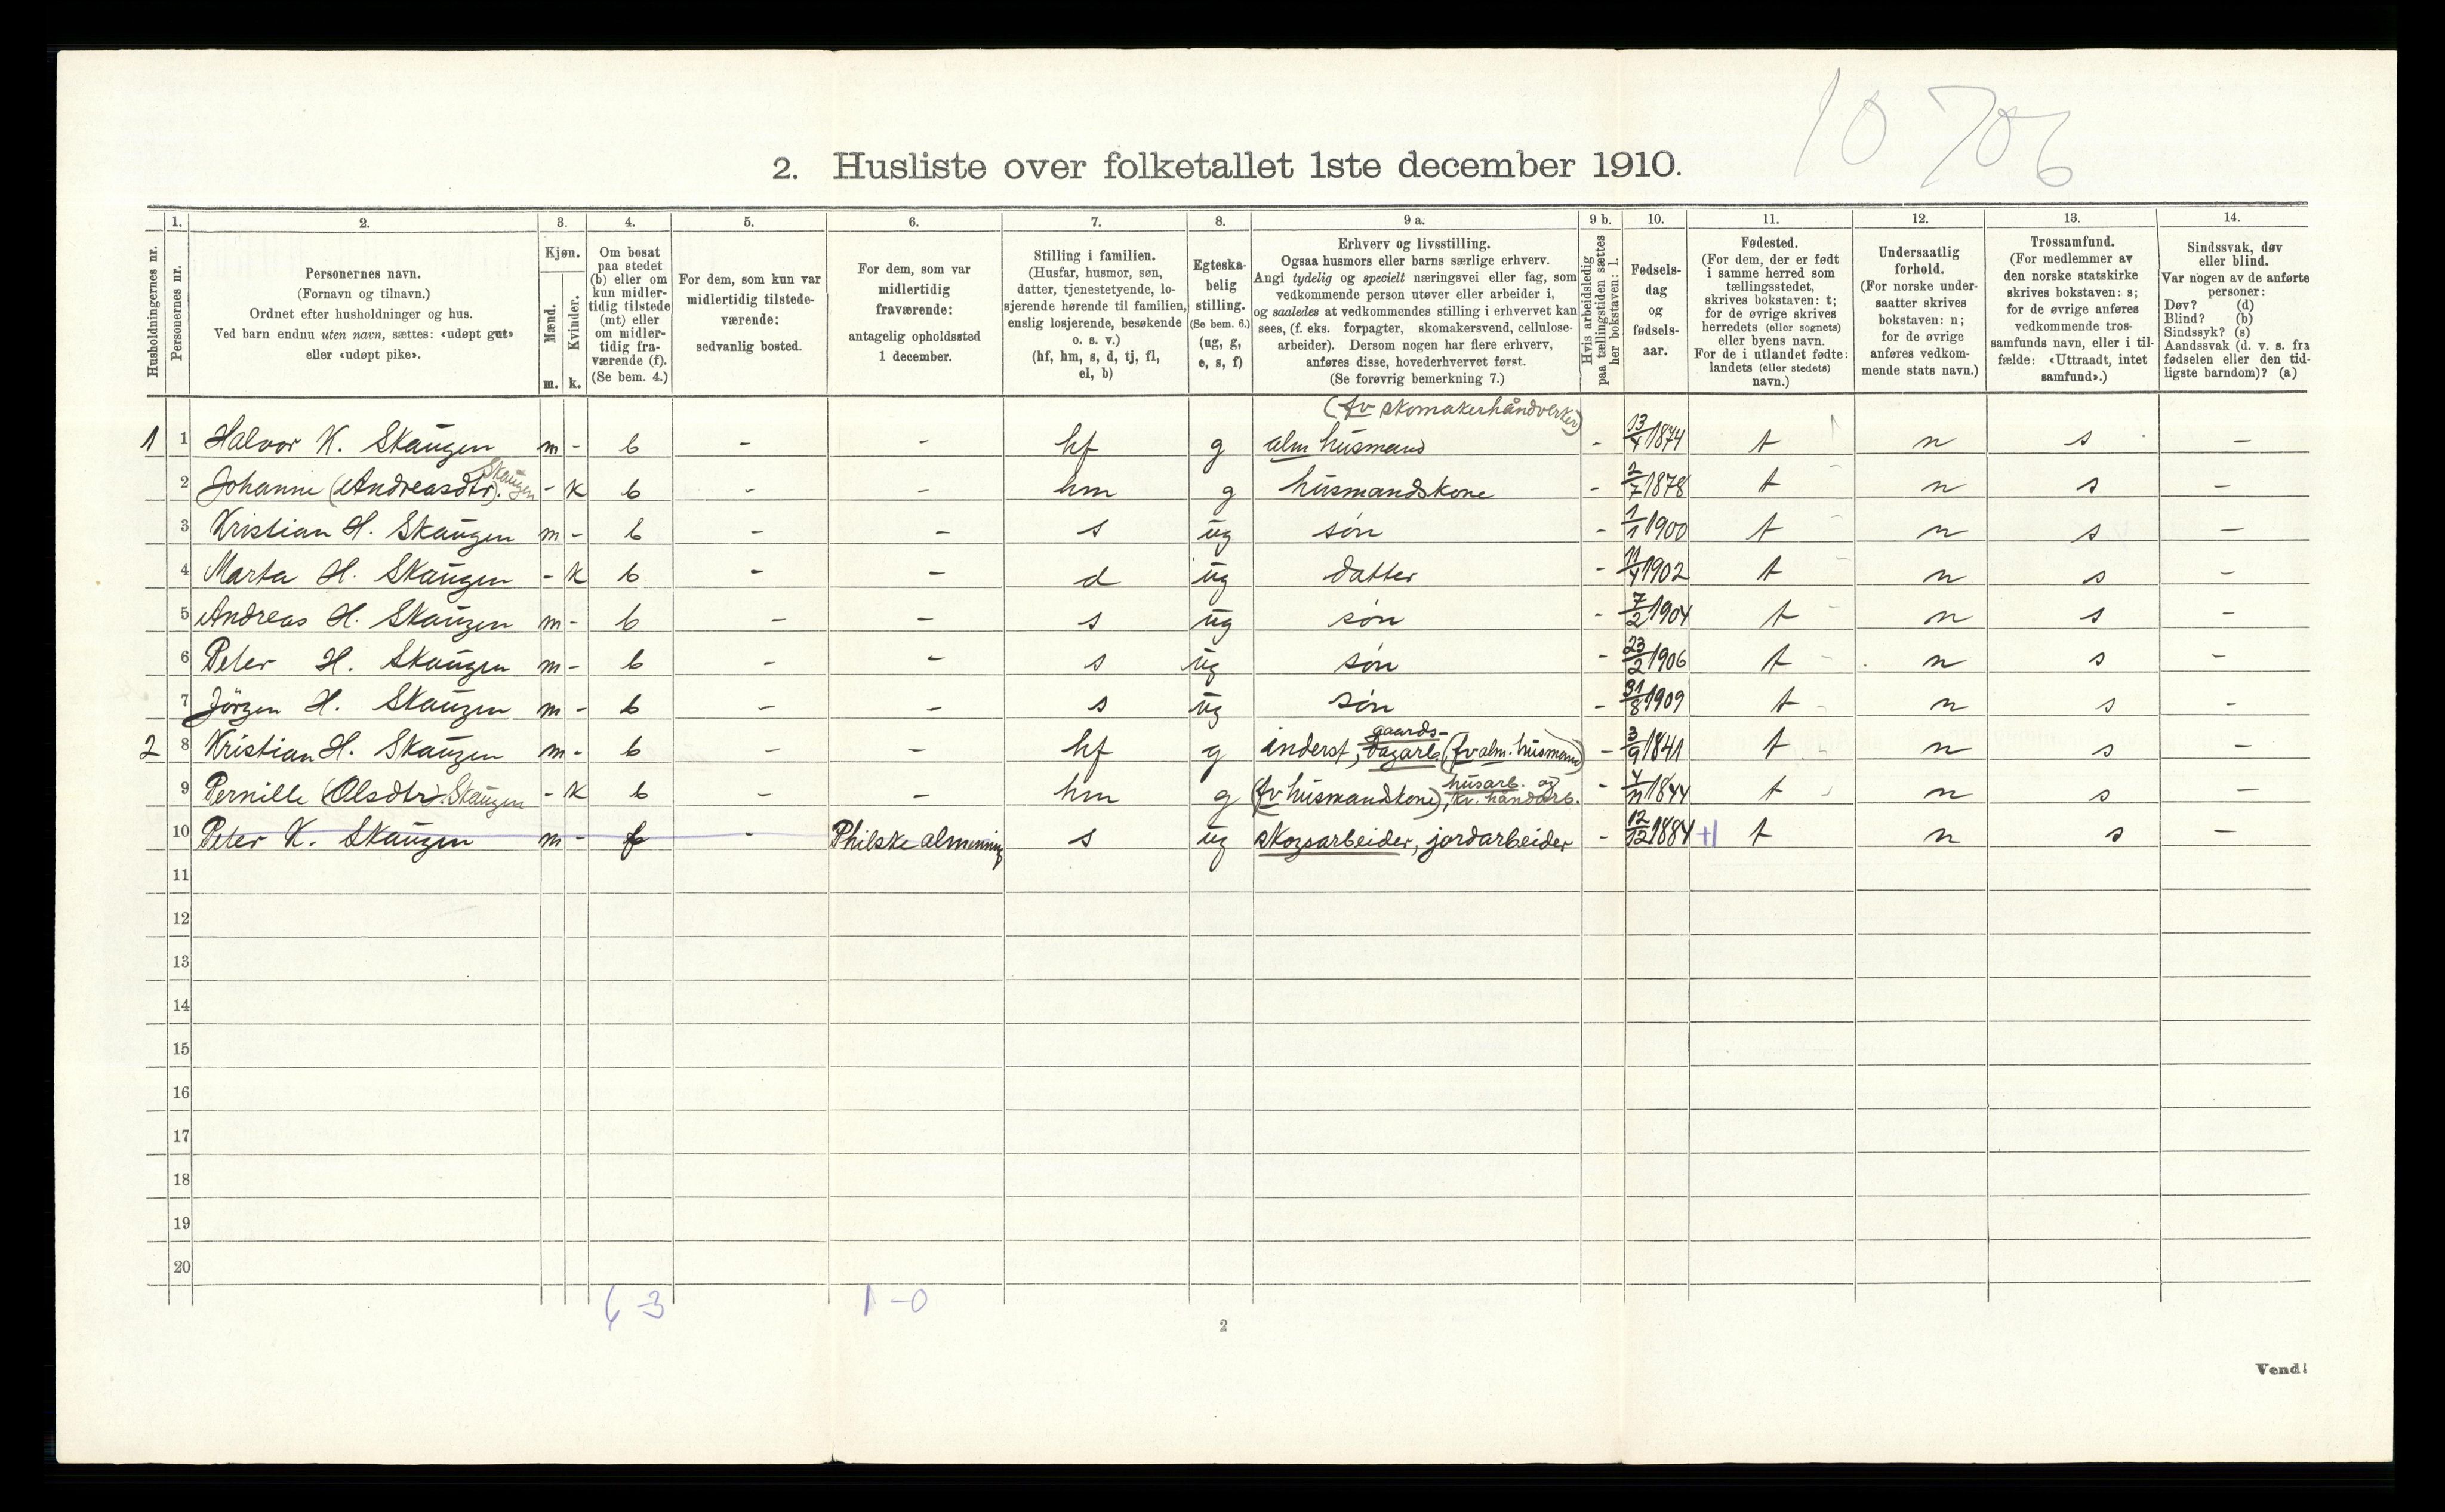 10 706
2. Husliste over folketallet 1ste december 1910.
1. 2. 3. 4. 5. 6. 7. 8. 9 a. 9 b. 10. 11. 12. 13. 14.
Husholdningernes nr.
Personernes nr.
Personernes navn.
(Fornavn og tilnavn.)
Ordnet efter husholdninger og hus.
Ved barn endnu uten navn, sættes: «udøpt gut»
eller «udøpt pike».
Kjøn.
Mænd.
Kvinder.
m. k.
Om bosat
paa stedet
(b) eller om
kun midler-
tidig tilstede
(mt) eller
om midler-
tidig fra-
værende (f).
(Se bem. 4.)
For dem, som kun var
midlertidig tilstede-
værende:
sedvanlig bosted.
For dem, som var
midlertidig
fraværende:
antagelig opholdssted
1 december.
Stilling i familien.
(Husfar, husmor, søn,
datter, tjenestetyende, lo-
sjerende hørende til familien,
enslig losjerende, besøkende
o. s. v.)
(hf, hm, s, d, tj, fl,
el, b)
Egteska-
belig
stilling.
(Se bem. 6.)
(ug, g,
e, s, f)
Erhverv og livsstilling.
Ogsaa husmors eller barns særlige erhverv.
Angi tydelig og specielt næringsvei eller fag, som
vedkommende person utøver eller arbeider i,
og saaledes at vedkommendes stilling i erhvervet kan
sees, (f. eks. forpagter, skomakersvend, cellulose-
arbeider). Dersom nogen har flere erhverv,
anføres disse, hovederhvervet først.
(Se forøvrig bemerkning 7.)
Hvis arbeidsledig
paa tællingstiden sættes
her bokstaven: l.
Fødsels-
dag
og
fødsels-
aar.
Fødested.
(For dem, der er født
i samme herred som
tællingsstedet,
skrives bokstaven: t;
for de øvrige skrives
herredets (eller sognets)
eller byens navn.
For de i utlandet fødte:
landets (eller stedets)
navn.)
Undersaatlig
forhold.
(For norske under-
saatter skrives
bokstaven: n;
for de øvrige
anføres vedkom-
mende stats navn.)
Trossamfund.
(For medlemmer av
den norske statskirke
skrives bokstaven: s;
for de øvrige anføres
vedkommende tros-
samfunds navn, eller i til-
fælde: «Uttraadt, intet
samfund».)
Sindssvak, døv
eller blind.
Var nogen av de anførte
personer:
Døv? (d)
Blind? (b)
Sindssyk? (s)
Aandssvak (d. v. s. fra
fødselen eller den tid-
ligste barndom)? (a)
(fv skomakerhåndverker)
1 1 Halvor K. Skaugen m - b - - hf g alm husmand - 13/4 1874 t n s -
Skaugen
2 Johanne (Andreasdtr). - k b - - hm g husmandskone - 2/7 1878 t n s -
3 Kristian H. Skaugen m - b - - s ug søn - 1/1 1900 t n s -
4 Marta H. Skaugen - k b - - d ug datter - 11/4 1902 t n s -
5 Andreas H. Skaugen m - b - - s ug søn - 7/2 1904 t n s -
6 Peter H. Skaugen m - b - - s ug søn - 23/2 1906 t n s -
7 Jörgen H. Skaugen m - b - - s ug søn - 31/8 1909 t n s -
gaards-
2 8 Kristian H. Skaugen m - b - - hf g inderst, dagarb. (fv alm. husmand) - 3/9 1841 t n s -
husarb. og
9 Pernille (Olsdtr). Skaugen - k b - - hm g (fv husmandskone), kv. håndarb. - 4/11 1844 t n s -
10 Peter K. Skaugen m - f - Philske almenning s ug skogsarbeider, jordarbeider - 12/12 1884 +1 t n s -
11
12
13
14
15
16
17
18
19
20
6 - 3 1 - 0
2
Vend!